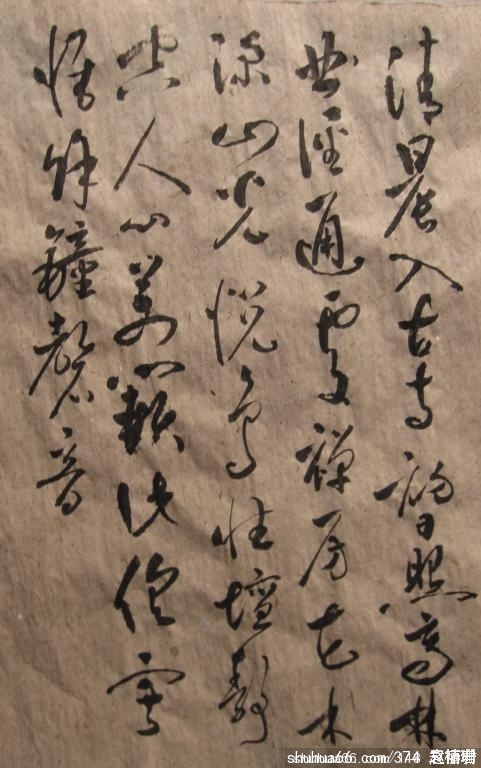 清晨入古寺初日照高林
曲徑通幽處禪房花木
深山光悅鳥性潭影
空人心萬籟此俱寂
惟餘鐘磬音
shuhua66.com/374